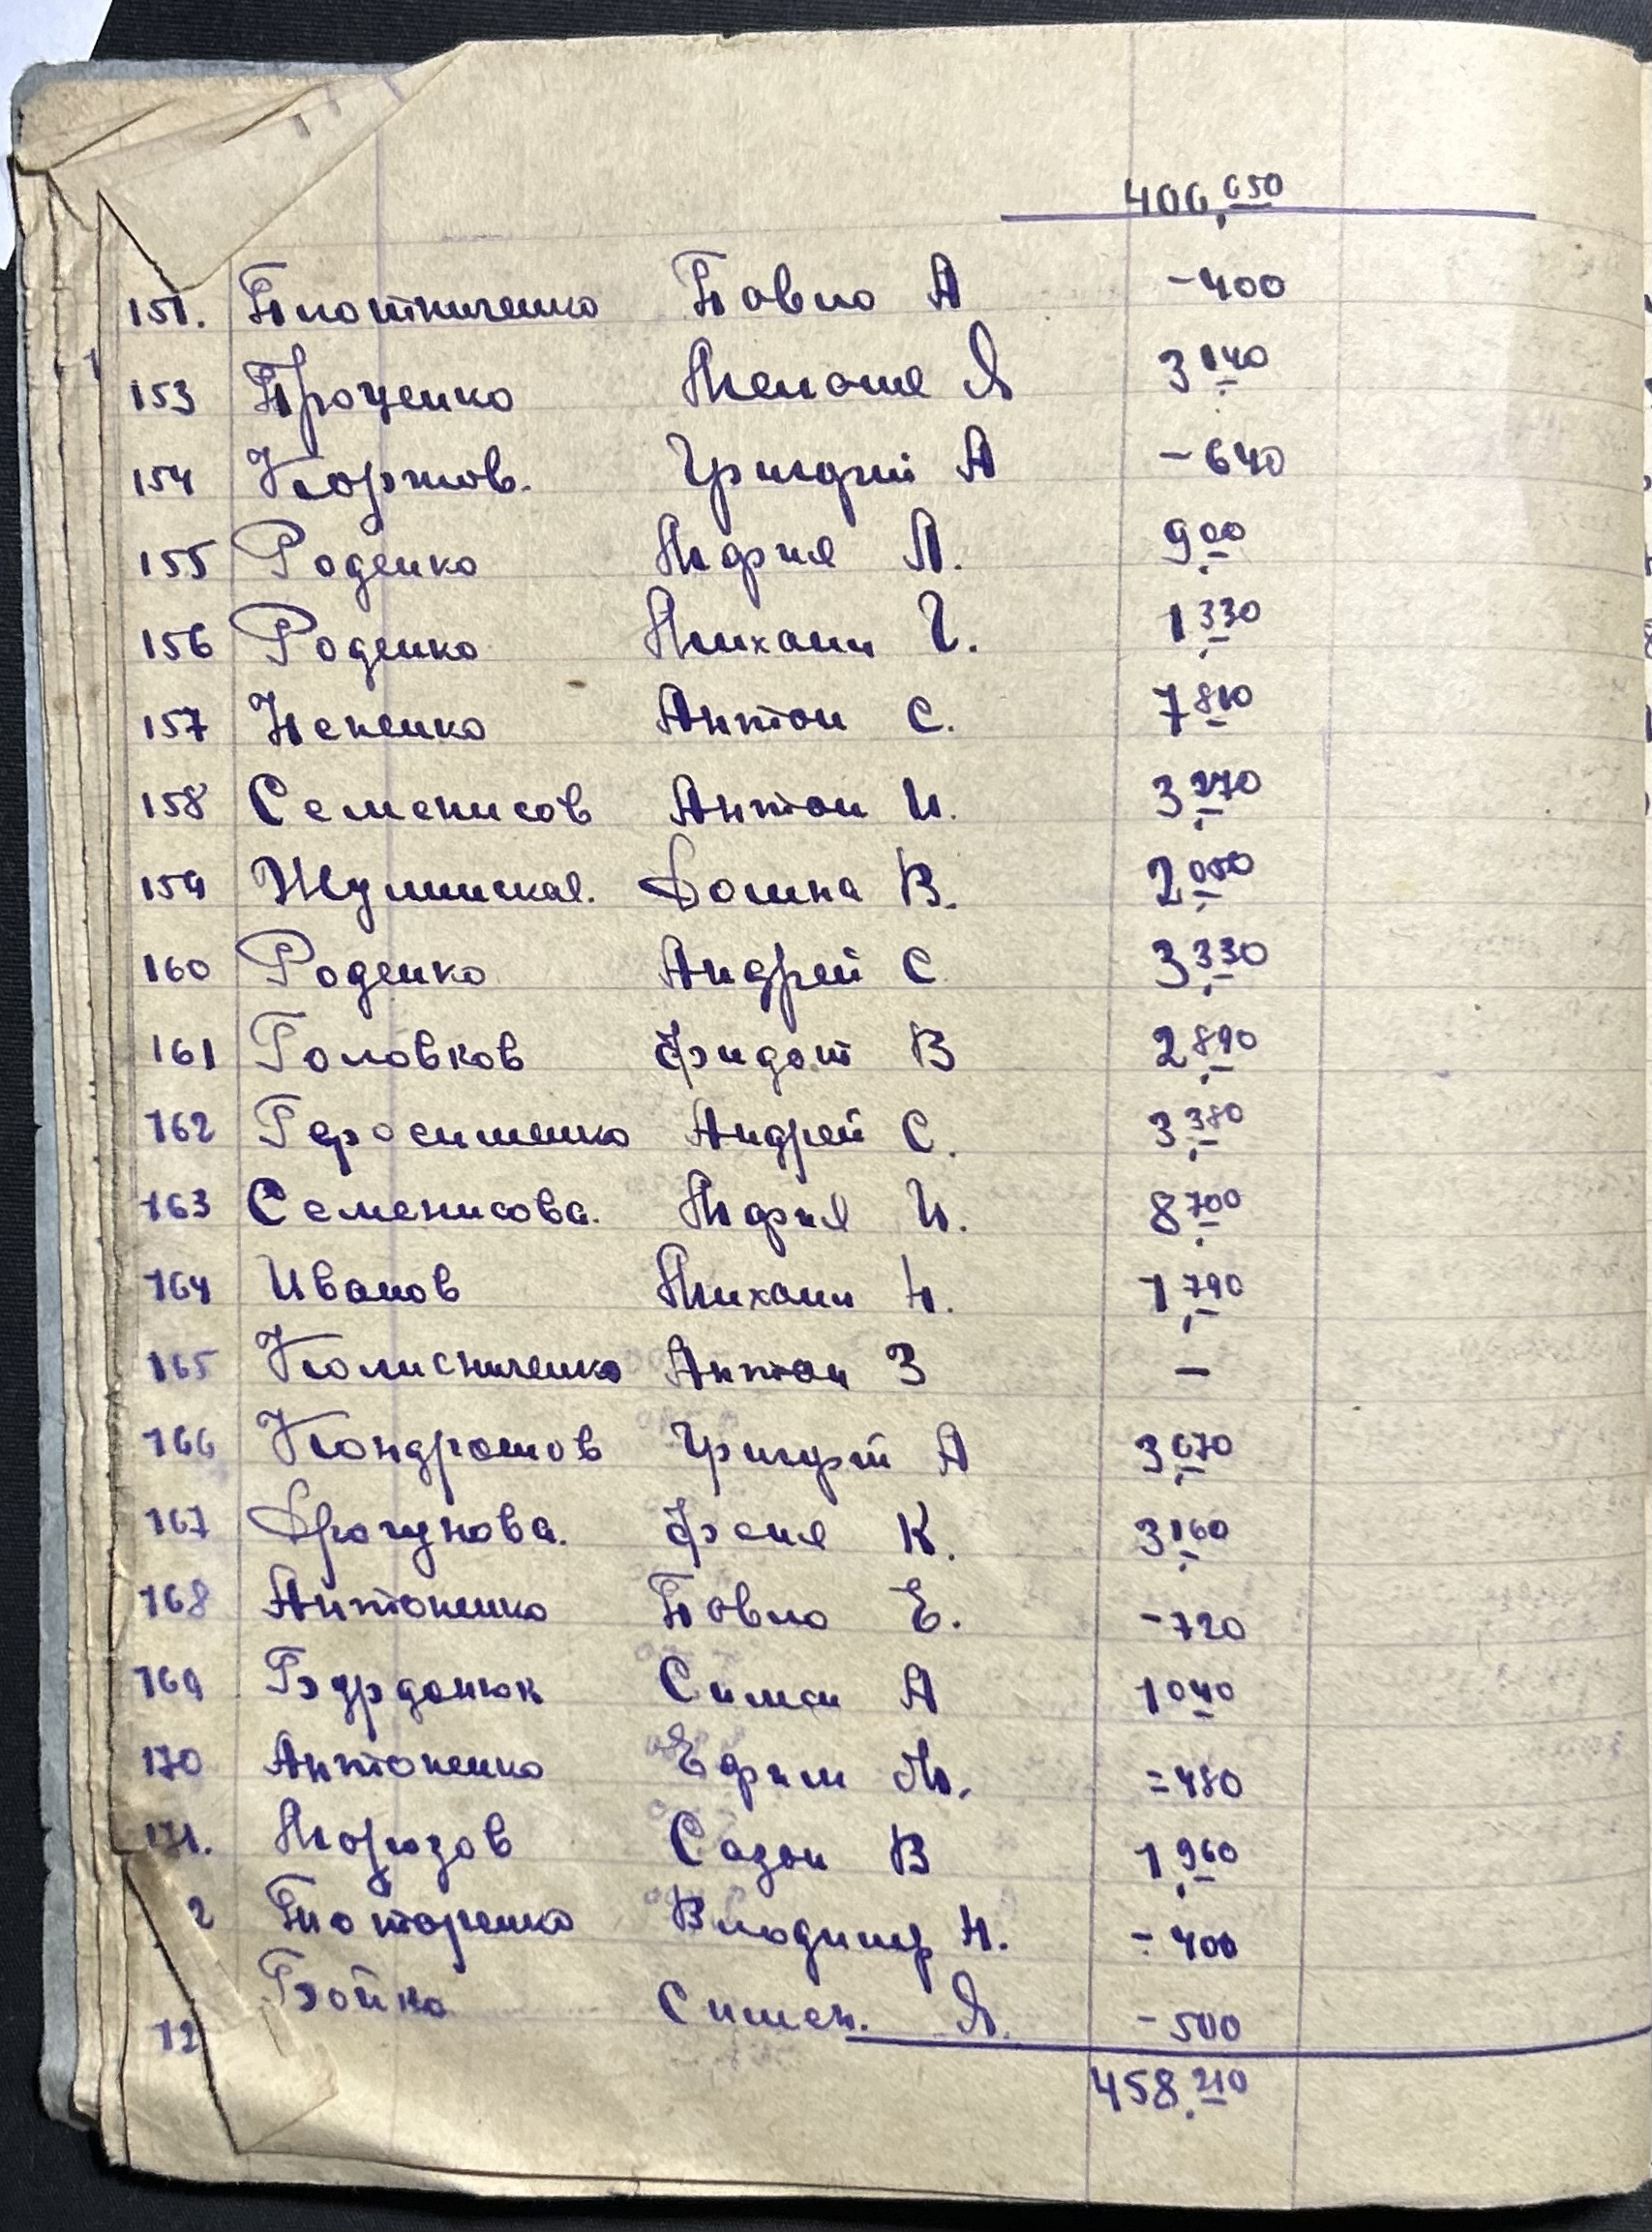 406,650
151. Плотниченко Павло А -400
153 Проценко Мелания Я 3,140
154 Коржов. Григорий А -640
155 Раденко Мария А. 9,00
156 Раденко Михаил Г. 1,330
157 Непенко Антон С. 7,860
158 Семенисов Антон И. 3,270
159 Шуминская. Домна В. 2,050
160 Раденко Андрей С 3,330
161 Головков Федот В 2,890
162 Герасименко Андрей С. 3,380
163 Семенисова. Мария И. 8,700
164 Иванов Михаил Н. 1,790
165 Колисниченко Антон З —
166 Кондратов Григорий А 3,070
167 Драгунова. Фения К. 3,160
168 Антоненко Павло Е. -720
169 Бурданюк Симон А 1040
170 Антоненко Ефим М. =480
171. Морозов Сазон В 1,960
2 Платоренко Владимир Н. -400
Бойко Симен. Я. -500
458,210